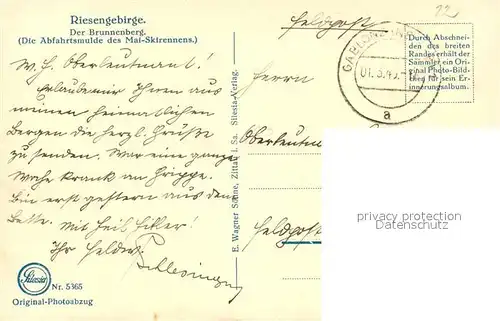 Riesengebirge.
Der Brunnenberg.
(Die Abfahrtsmulde des Mai-Skirennens.)
W. H. Oberleutnant!
Erlaube mir Ihnen aus
meinen heimatlichen
Bergen die herzl. Grüße
zu senden. War eine ganze
Woche krank an Grippe.
Bin erst gestern aus dem
Bette. Mit Heil Hitler!
Ihr Feldw.
Schlesinger
Silesia
Nr. 5365
Original-Photoabzug
E. Wagner Söhne, Zittau i. Sa. Silesia-Verlag.
Feldpost
12
GABLONZ
01.3.43
a
Durch Abschnei-
den des breiten
Randes erhält der
Sammler ein Ori-
ginal Photo-Bild-
chen für sein Er-
innerungsalbum.
Herrn
Oberleutnant
Feldpost
privacy protection
Datenschutz